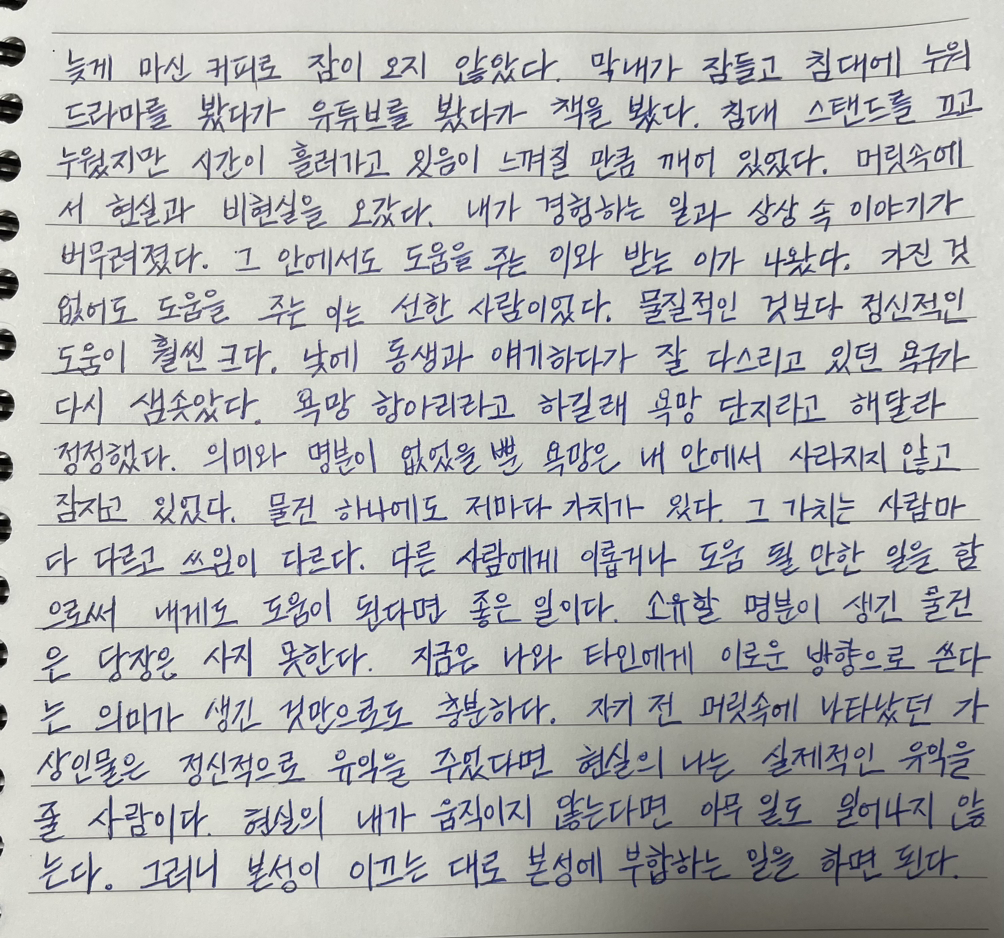 늦게 마신 커피로 잠이 오지 않았다. 막내가 잠들고 침대에 누워
드라마를 봤다가 유튜브를 봤다가 책을 봤다. 침대 스탠드를 끄고
누웠지만 시간이 흘러가고 있음이 느껴질 만큼 깨어 있었다. 머릿속에
서 현실과 비현실을 오갔다. 내가 경험하는 일과 상상 속 이야기가
버무려졌다. 그 안에서도 도움을 주는 이와 받는 이가 나왔다. 가진 것
없어도 도움을 주는 이는 선한 사람이었다. 물질적인 것보다 정신적인
도움이 훨씬 크다. 낮에 동생과 얘기하다가 잘 다스리고 있던 욕구가
다시 샘솟았다. 욕망 항아리라고 하길래 욕망 단지라고 해달라
정정했다. 의미와 명분이 없었을 뿐 욕망은 내 안에서 사라지지 않고
잠자고 있었다. 물건 하나에도 저마다 가치가 있다. 그 가치는 사람마
다 다르고 쓰임이 다르다. 다른 사람에게 이롭거나 도움 될 만한 일을 함
으로써 내게도 도움이 된다면 좋은 일이다. 소유할 명분이 생긴 물건
은 당장은 사지 못한다. 지금은 나와 타인에게 이로운 방향으로 쓴다
는 의미가 생긴 것만으로도 충분하다. 자기 전 머릿속에 나타났던 가
상인물은 정신적으로 유익을 주었다면 현실의 나는 실제적인 유익을
줄 사람이다. 현실의 내가 움직이지 않는다면 아무 일도 일어나지 않
는다. 그러니 본성이 이끄는 대로 본성에 부합하는 일을 하면 된다.